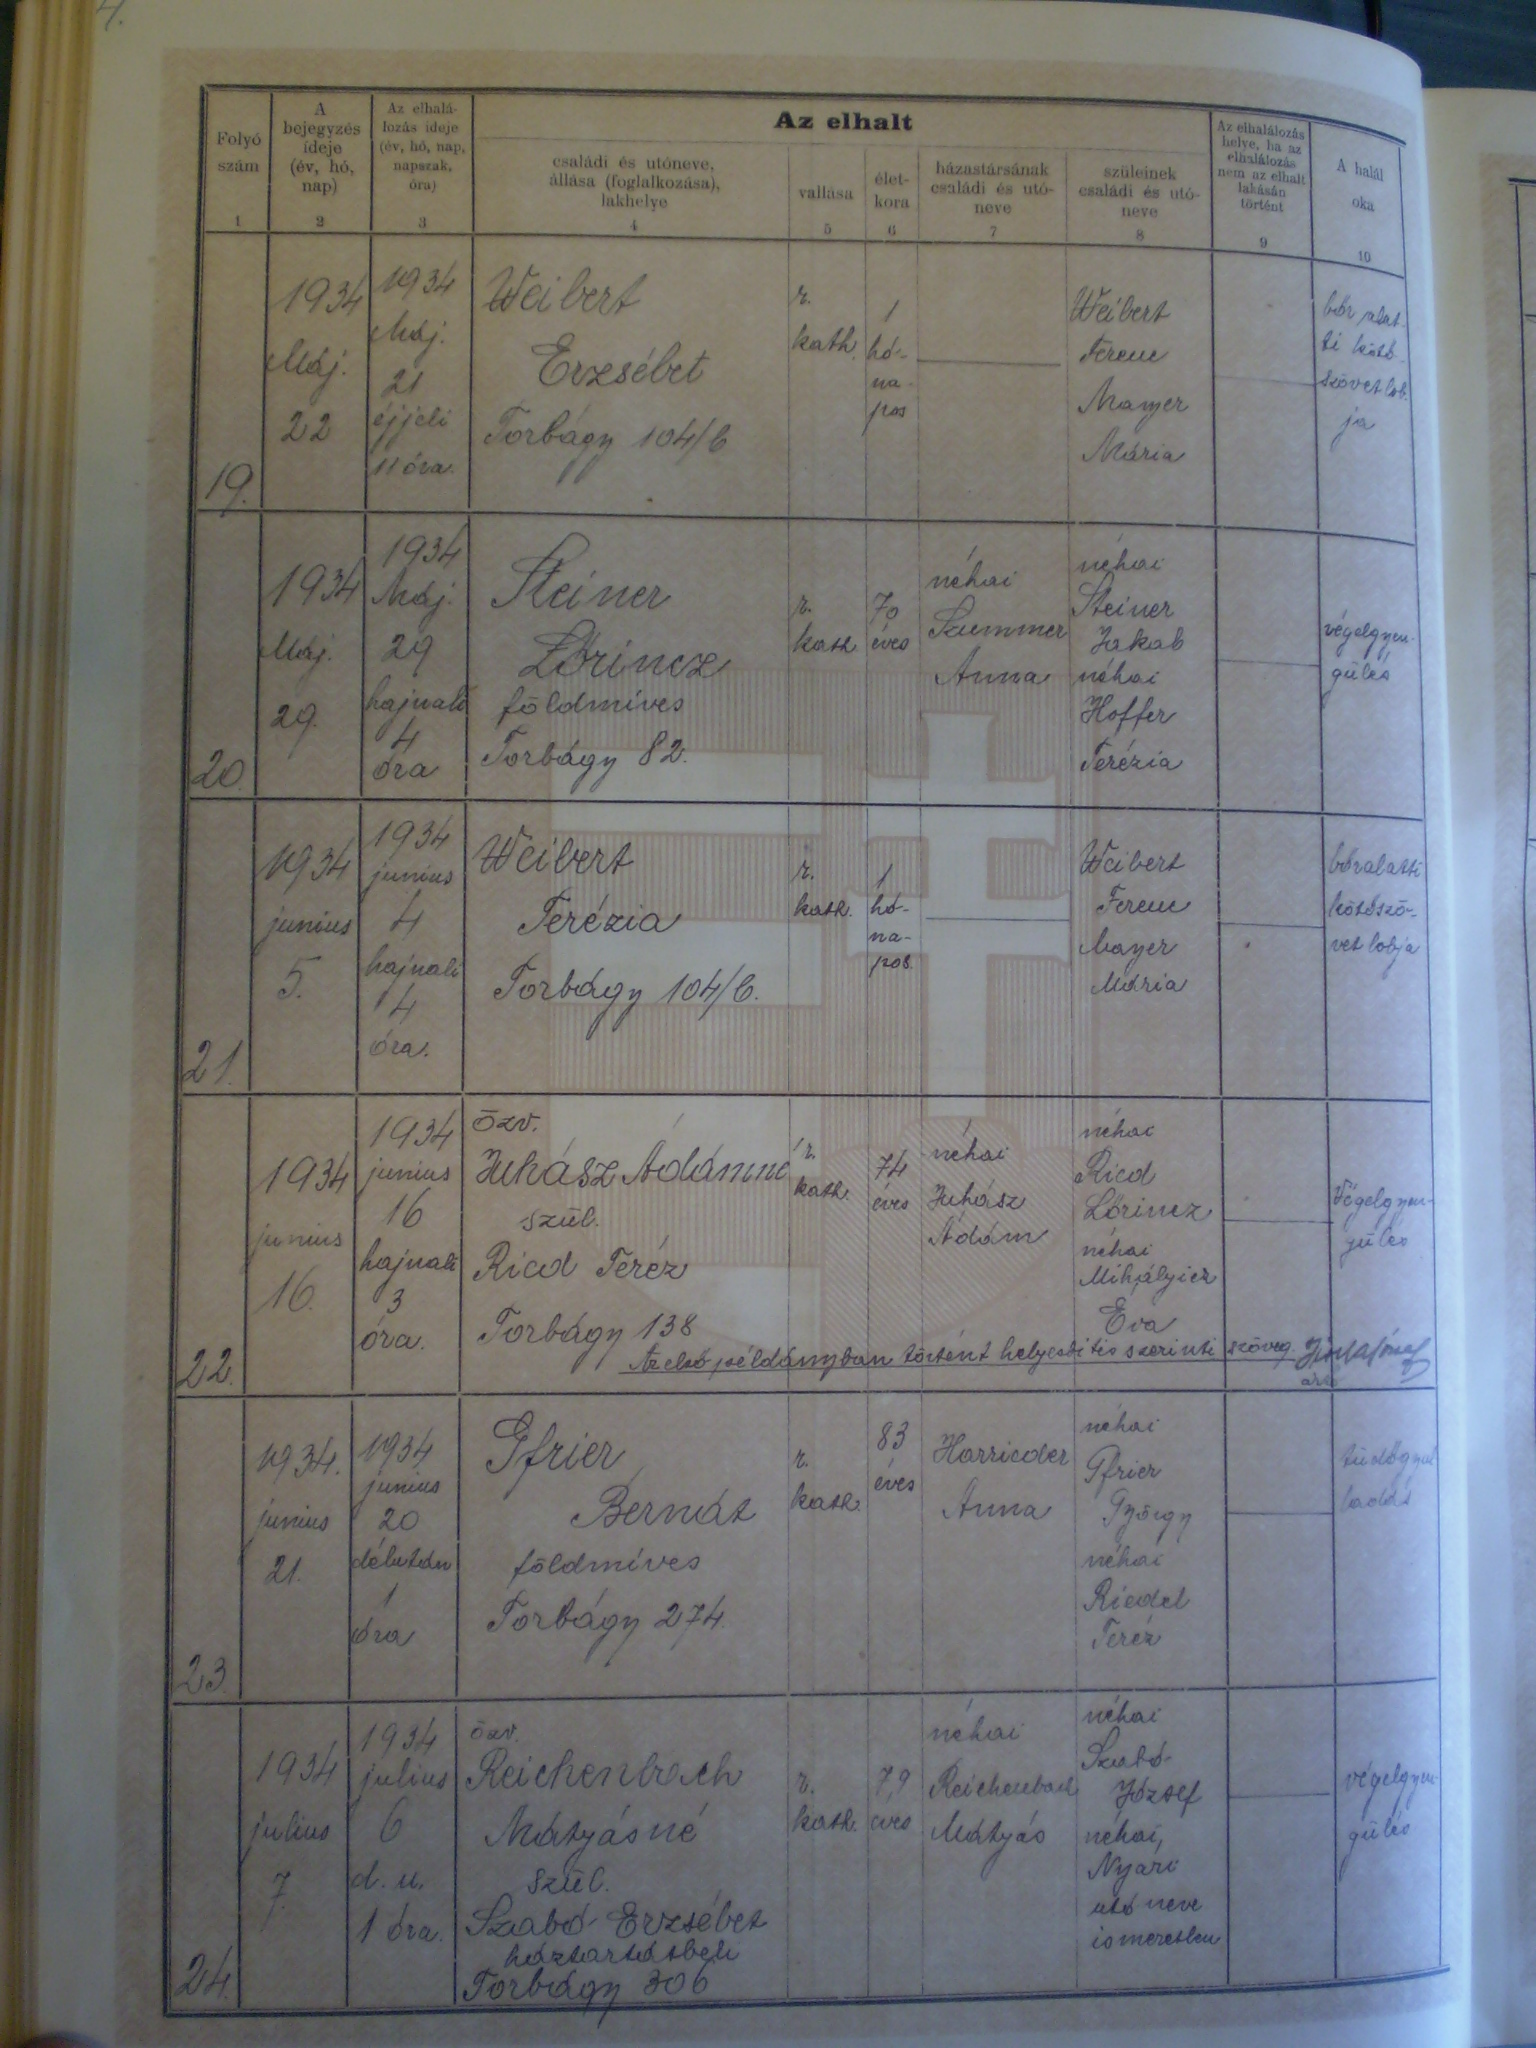 4.
Az elhalt
Folyó
szám
1
A
bejegyzés
ideje
(év, hó,
nap)
2
Az elhalá-
lozás ideje
(év, hó, nap,
napszak,
óra)
3
családi és utóneve,
állása (foglalkozása),
lakhelye
4
vallása
5
élet-
kora
6
házastársának
családi és utó-
neve
7
szüleinek
családi és utó-
neve
8
Az elhalálozás
helye, ha az
elhalálozás
nem az elhalt
lakásán
történt
9
A halál
oka
10
19.
1934
Máj.
22
1934
Máj.
21
éjjeli
11 óra.
Weibert
Erzsébet
Torbágy 104/b
r.
kath.
1
hó-
na-
pos
Weibert
Ferenc
Mayer
Mária
bőr alat-
ti kötő-
szövet lob-
ja
20.
1934
Máj.
29.
1934
Máj.
29
hajnali
4
óra
Steiner
Lőrincz
földmíves
Torbágy 82.
r.
kath.
70
éves
néhai
Summer
Anna
néhai
Steiner
Jakab
néhai
Hoffer
Terézia
végelgyen-
gülés
21.
1934
junius
5.
1934
junius
4
hajnali
4
óra.
Weibert
Terézia
Torbágy 104/b.
r.
kath.
1
hó-
na-
pos.
Weibert
Ferenc
Mayer
Mária
bőralatti
kötőszö-
vet lobja
22.
1934
junius
16.
1934
junius
16
hajnali
3
óra.
özv.
Juhász Ádámné
szül.
Ried Teréz
Torbágy 138
r.
kath.
74
éves
néhai
Juhász
Ádám
néhai
Ried
Lőrincz
néhai
Mihályicz
Éva
Végelgyen-
gülés
Az első példányban történt helyesbítés szerinti szöveg.
23.
1934.
junius
21.
1934
junius
20
délután
1
óra
Gfrier
Bernát
földmíves
Torbágy 274.
r.
kath.
83
éves
Harrieder
Anna
néhai
Gfrier
György
néhai
Riedel
Teréz
tüdőgyul
ladás
24.
1934
julius
7.
1934
julius
6
d. u.
1 óra.
özv.
Reichenbach
Mátyásné
szül.
Szabó Erzsébet
háztartásbeli
Torbágy 306
r.
kath.
79
éves
néhai
Reichenbach
Mátyás
néhai
Szabó
József
néhai,
Nyári
utó neve
ismeretlen
végelgyen-
gülés